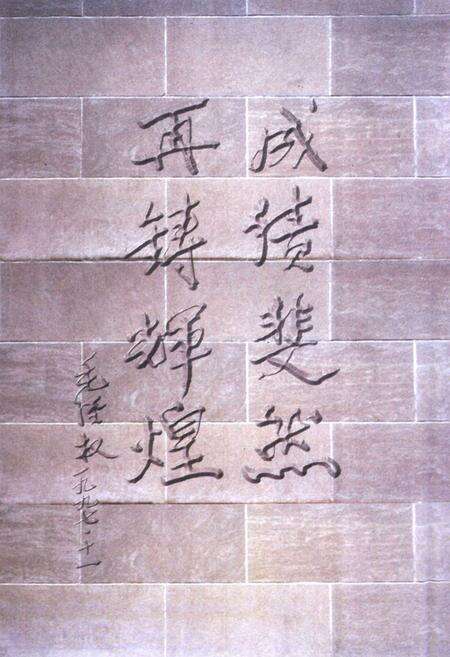 成绩斐然
再铸辉煌
毛 一九九七·十一